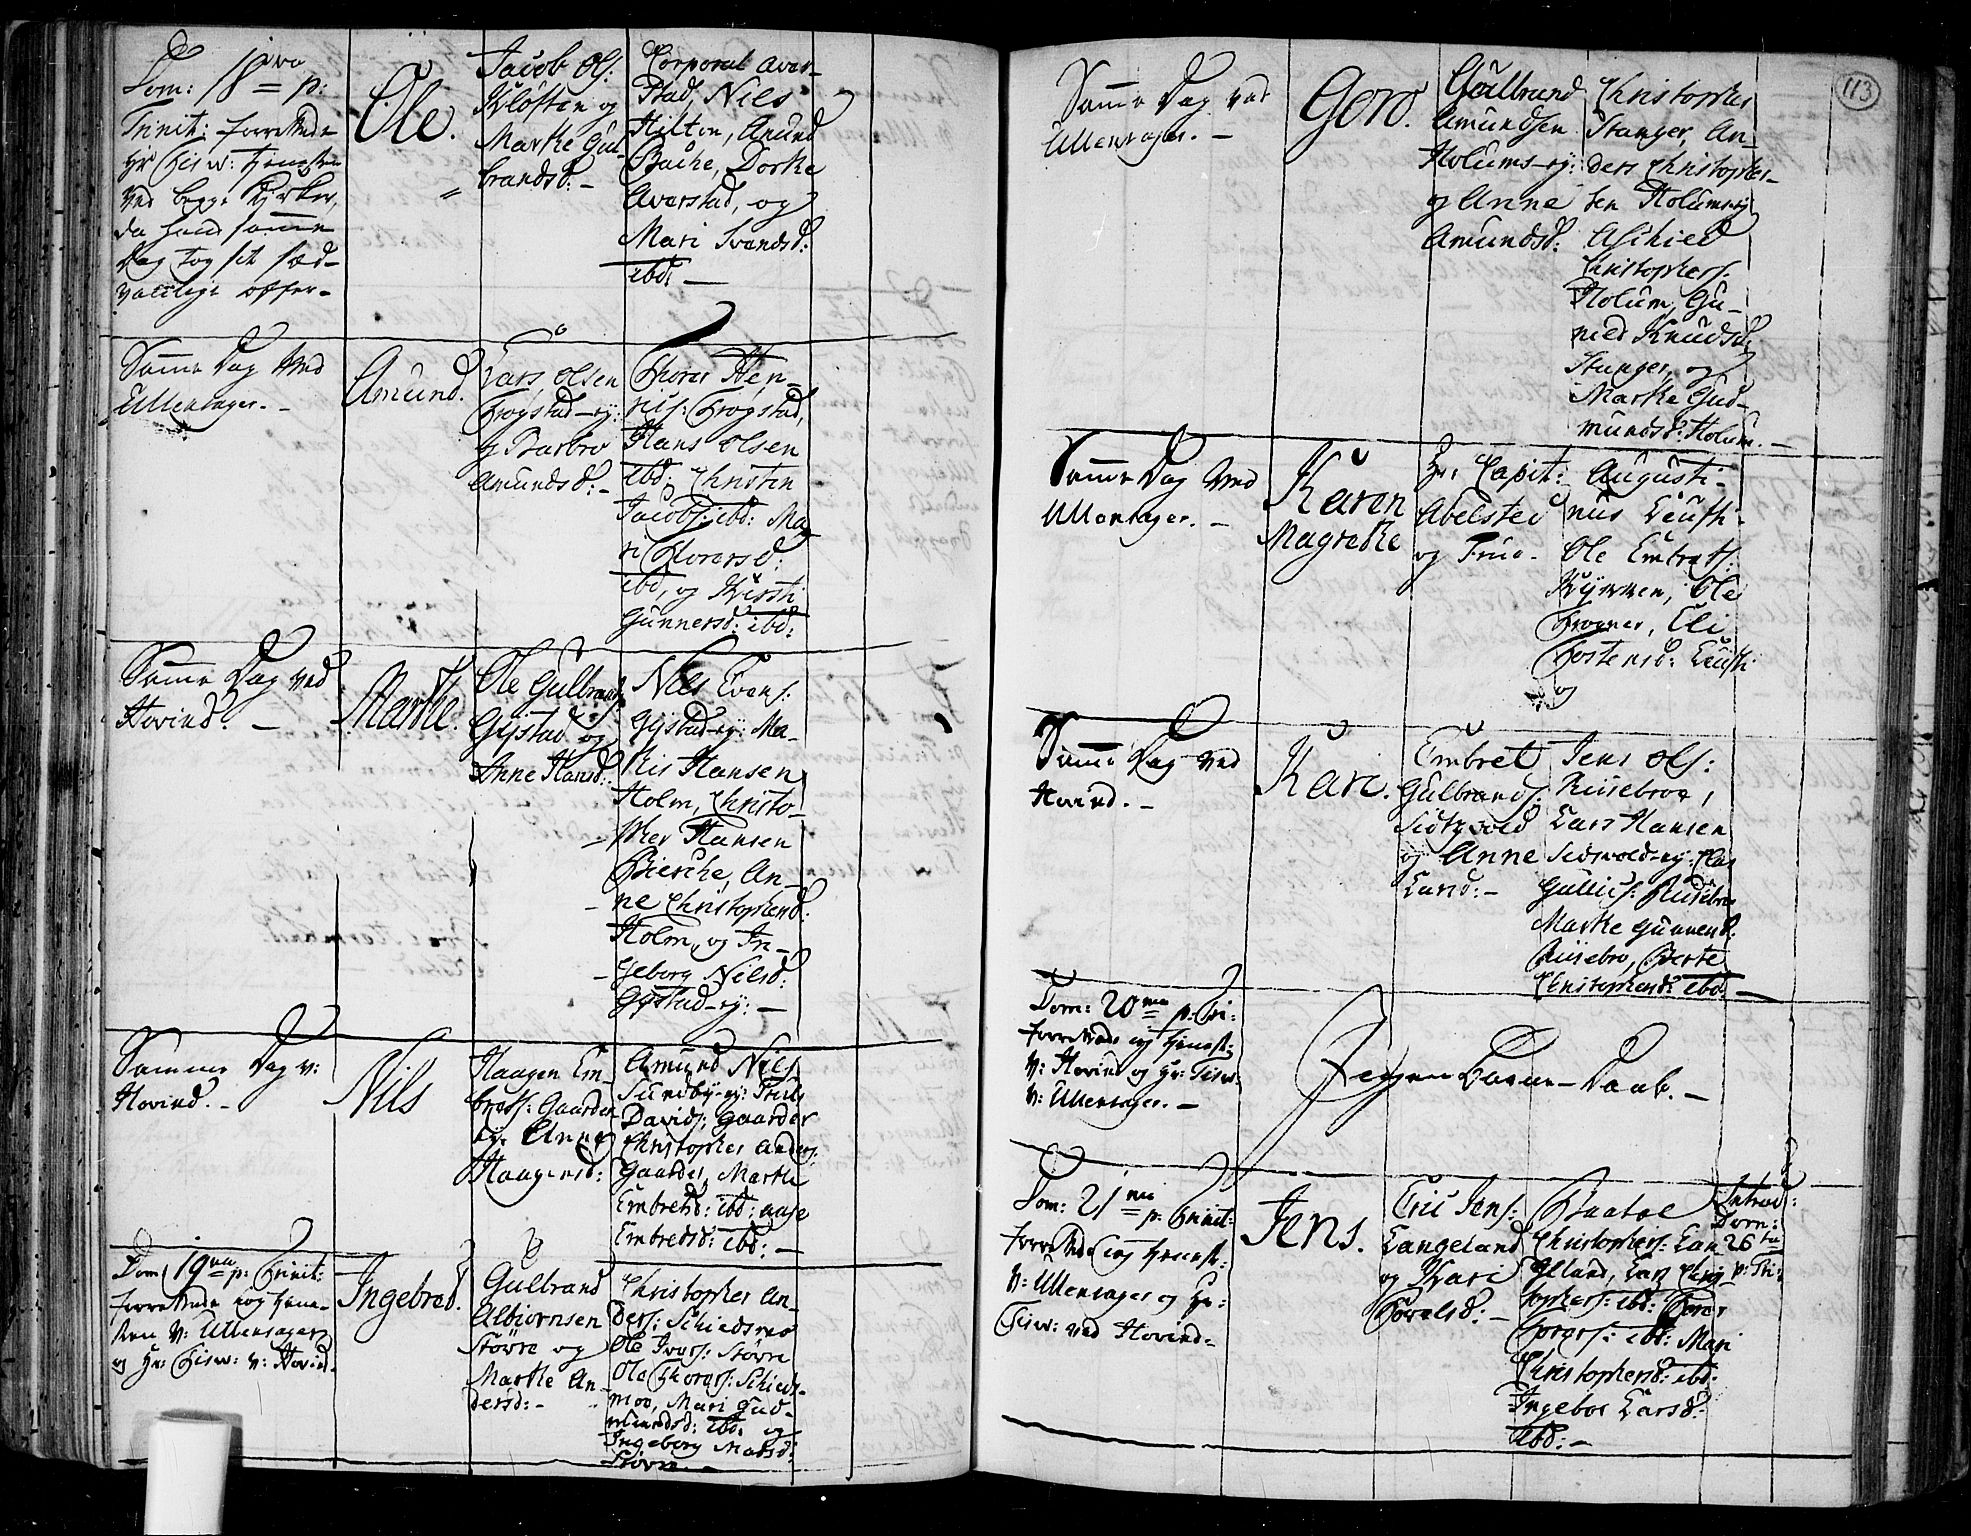 Dom: 18va p:
Trinit: forrettede
Hr Thisw: Tjenesten
ved begge Kirker,
da hand samme
Dag tog sit sæd-
vanlige offer.
Ole.
Jacob Ols:
Kløften og
Marthe Gul-
brandsd: -
Corporal Aver-
stad, Nils
Hilton, Amund
Bache, Dorthe
Averstad, og
Mari Svendsd:
ibd: -
Samme Dag ved
Ullensager. -
Amund.
Lars Olsen
Frogstad-ey:
og Barbro
Amundsd: -
Thorer Hen-
ris: Frogstad,
Hans Olsen
ibd: Christen
Jacobs: ibd: Ma-
ri Thorersd:
ibd, og Kirsti
Gunnersd: ibd:
Samme Dag ved
Hovind. -
Marthe.
Ole Gulbrands:
Gystad og
Anne Hansd:
Nils Evens:
Gystad-ey: Ma-
this Hansen
Holm, Christo-
pher Hansen
Bierche, An-
ne Christophersd:
Holm, og In-
geborg Nilsd:
Gystad-ey: -
Samme Dag v:
Hovind. -
Nils
Haagen Em-
brets: Gaarder
ey: Anne
Haagensd:
Amund Nils
Sundby-ey: Truls
Davids: Gaarder
Christopher Anders:
Gaarder, Marthe
Embretsd: ibd: Aase
Embredsd: ibd: -
Dom: 19na p: Trinit:
forrettede jeg Tjene-
sten v: Ullensager
og Hr: Thisw: v: Hovind.
Ingebred.
Gulbrand
Albiornsen
Støvre og
Marthe An-
dersd: -
Christopher An-
ders: Schiedsmo
Ole Ivars: Støvre
Ole Thorers: Schieds-
moo, Mari Gud-
mundsd: ibd: og
Ingeborg Madsd:
Støvre. -
113
Samme Dag ved
Ullensager. -
Goro.
Gulbrand
Amundsen
Holums-ey:
og Anne
Amundsd:
Christopher
Stanger, An-
ders Christopher-
sen Holums-ey
Aschied
Christophers:
Holum, Gu-
nild Knudsd:
Stanger, og
Marthe Gud-
mundsd: Holum. -
Samme Dag ved
Ullensager. -
Karen
Magrethe
Hr: Capit:
Abelsted
og Frue -
Augusti-
nus
Ole Embrets:
Kyrren, Ole
Frogner, Eli
Tostensd:
og
Samme Dag ved
Hovind. -
Kari.
Embret
Gulbrands:
Sidtzvold
og Anne
Larsd: -
Jens Ols:
Riisebroe,
Lars Hansen
Sidsvold-ey: Clas
Gullics: Riisebro
Marthe Gunnersd:
Riisebro, Berte
Christophersd: ibd: -
Dom: 20ma p: Tri:
forrettede jeg Tjenest:
v: Hovind og Hr: Thisw:
v: Ullensager. -
Ingen Barne-Daab. -
Dom: 21ma p: Trinit:
forrettede jeg Tjenest:
v: Ullensager og Hr:
Thisw: ved Hovind. -
Jens.
Eric Jens:
Langeland
og Kari
Torelsd: -
Baatoe
Christophers: Lan-
geland, Lars Chris-
tophers: ibd: Thorer
Thorers: ibd: Mari
Christophersd: ibd:
Ingebor Larsd:
ibd: -
Introd:
Dom:
26ta
p: Tri: